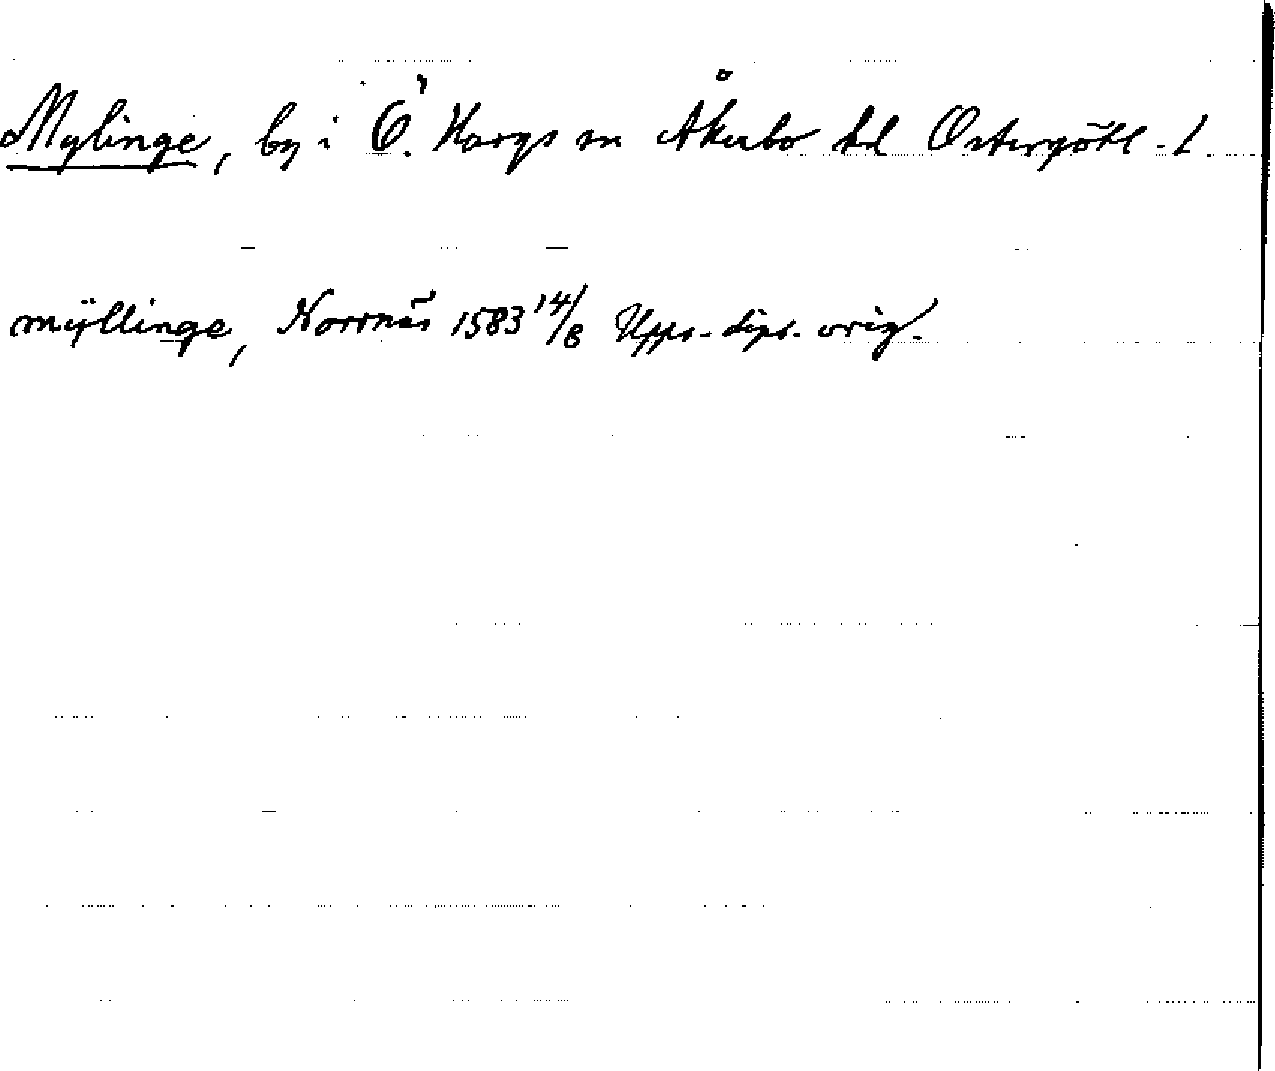 Mylinge, by i Ö. Hargs sn Åkerbo hd Östergötl. l.
mÿllinge, Norrnäs 1583 14/8 Upps. dipl. orig.